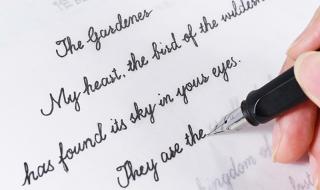 The Gardenes
My heart, the bird of the wilderne
has found its sky in your eyes.
They are the
kingdom of